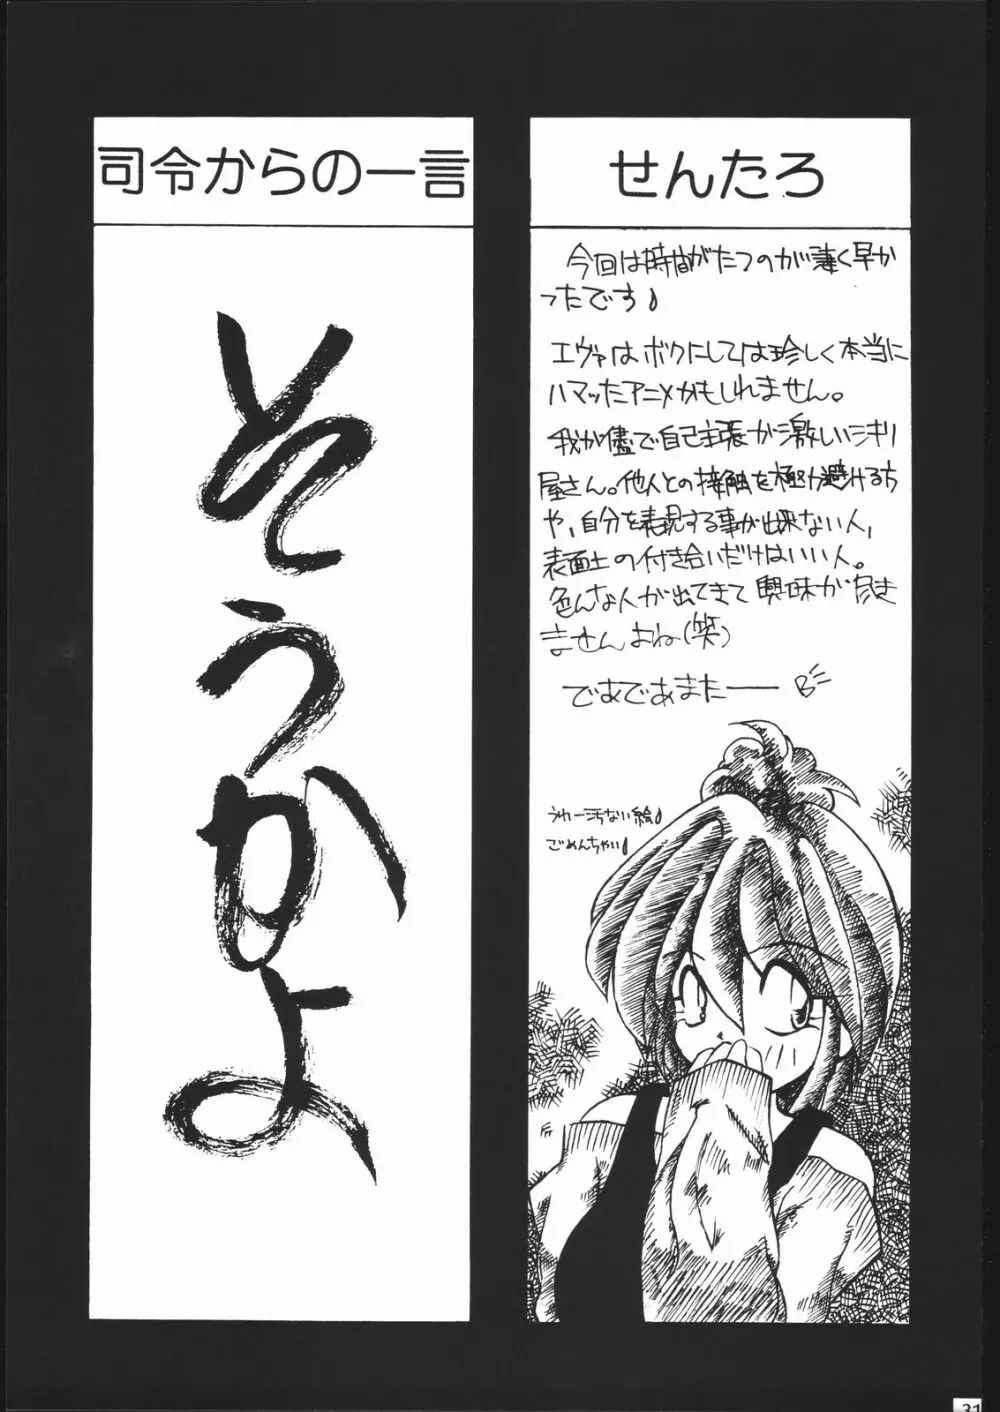 司令からの一言
そうかよ
せんたろ
今回は時間がたつのが凄く早か
ったです♪
エヴァはボクにしては珍しく本当に
ハマッたアニメかもしれません。
我が儘で自己主張が激しいシキリ
屋さん。他人との接触を極力避けるち
や、自分を表現する事が出来ない人、
表面上の付き合いだけはいい人。
色んな人が出てきて興味が尽き
ませんよね(笑)
でわでわまたー
うわー汚ない絵♪
ごめんちゃい♪
31